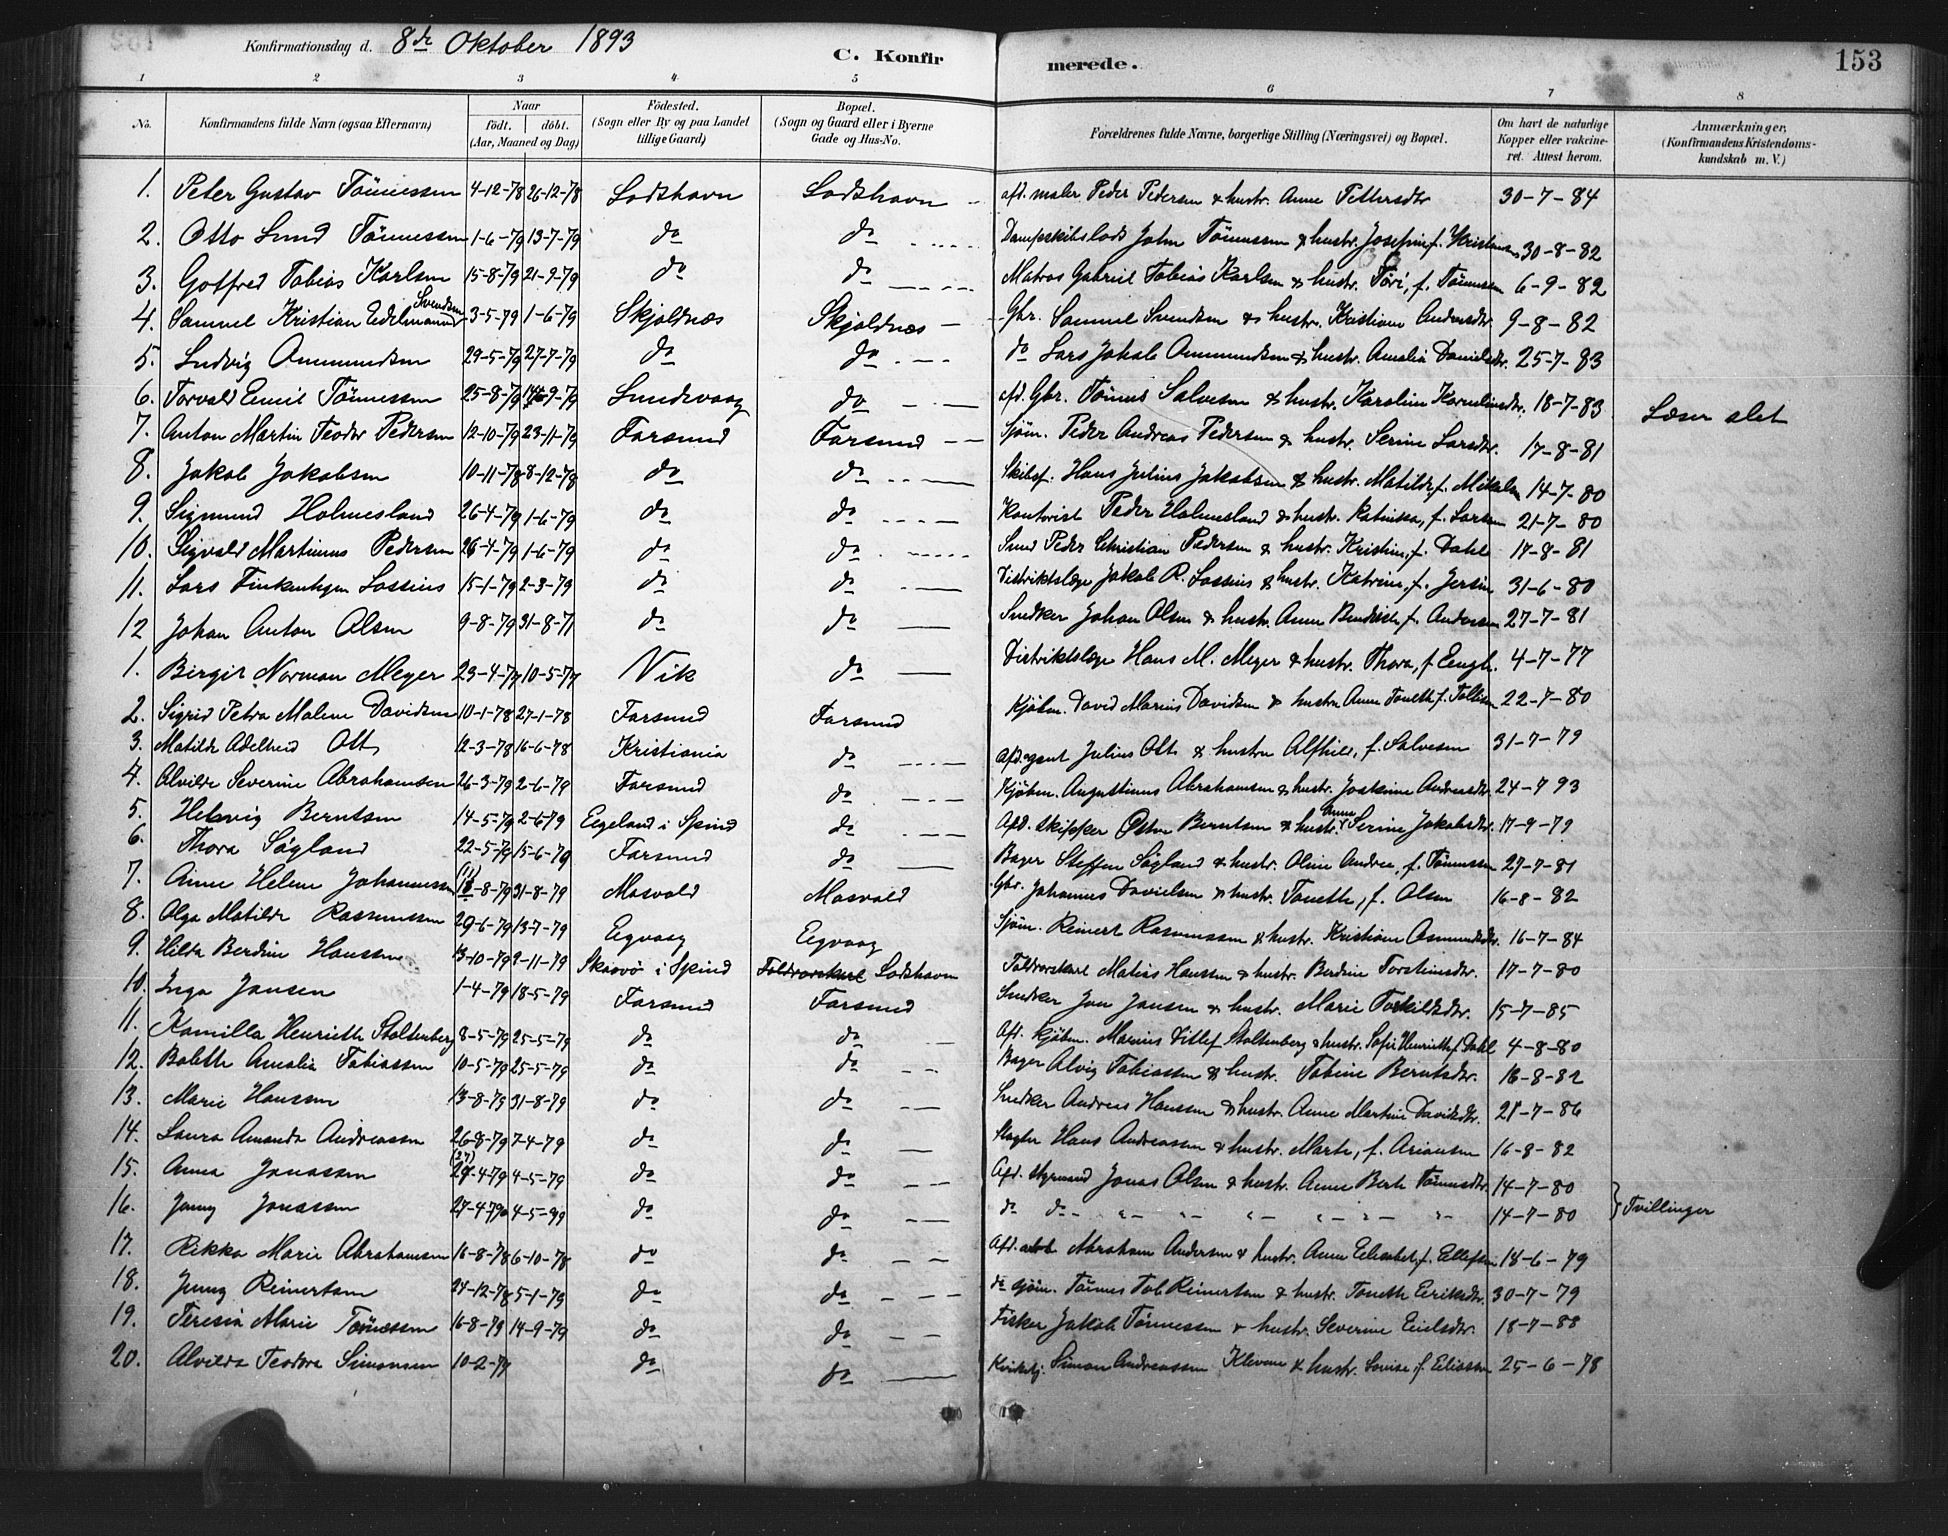 Konfirmationsdag d. 8de Oktober 1893 C. Konfirmerede. 153
1 2 3 4 5 6 7 8
No. Konfirmandens fulde Navn (ogsaa Efternavn) Naar födt. döbt. (Aar, Maaned og Dag) Födested. (Sogn eller By og paa Landet tillige Gaard) Bopæl. (Sogn og Gaard eller i Byerne Gade og Hus-No. Forældrenes fulde Navne, borgerlige Stilling (Næringsvei) og Bopæl. Om havt de naturlige Kopper eller vakcineret. Attest herom. Anmærkninger. (Konfirmandens Kristendomskundskab m. V.)
1. Peter Gustav Tönnessen 4-12-78 26-12-78 Lodshavn Lodshavn afd. maler Peder Pedersen & hustr. Anne Pettersdtr 30-7-84
2. Otto Lund Tönnessen 1-6-79 13-7-79 do do Dampskibslods John Tönnessen & hustr. Josefine f. 30-8-82
3. Gotfred Tobias Karlsen 15-8-79 21-9-79 do do Matros Gabriel Tobias Karlsen & hustr. Tori, f. Tönnessen 6-9-82
4. Samuel Kristian Edelmann Svendsen 3-5-79 1-6-79 Skjoldnæs Skjoldnæs Gbr. Samuel Svendsen & hustr. Kristiane Andersdtr. 9-8-82
5. Ludvig Ommundsen 29-5-79 27-7-79 do do do Lars Jakob Ommundsen & hustr. Amalia Danielsdtr. 25-7-83
6. Torvald Emil Tönnessen 25-8-79 14-9-79 Sundsvaag do afd. Gbr. Tönnes Salvesen & hustr. Karoline Korneliusdtr. 18-7-83 Læser slet
7. Anton Martin Teodor Pedersen 12-10-79 23-11-79 Farsund Farsund Sjöm. Peder Andreas Pedersen & hustr. Serine Larsdtr. 17-8-81
8. Jakob Jakobsen 10-11-78 8-12-78 do do Skibsf. Hans Julius Jakobsen & hustr. Matilde, f. Mikalsen 14-7-80
9. Sigmund Holmesland 26-4-79 1-6-79 do do Kontorist Peder Holmesland & hustr. Katinka, f. Larsen 21-7-80
10. Sigvald Martinus Pedersen 26-4-79 1-6-79 do do Smed Peder Christian Pedersen & hustr. Kristine, f. Dahl 17-8-81
11. Lars Finkenhagen Lossius 15-1-79 2-3-79 do do Distriktslæge Jakob R. Lossius & hustr. Katrine, f. Jersin 31-6-80
12 Johan Anton Olsen 9-8-79 31-8-71 do do Snedker Johan Olsen & hustr. Anne Bendikte f. Andersen 27-7-81
1. Birgit Norman Meyer 23-4-77 10-5-77 Vik do Distriktslæge Hans M. Meyer & hustr. Thora, f. Eengh. 4-7-77
2. Sigrid Petra Malene Davidsen 10-1-78 27-1-78 Farsund Farsund Kjöbm. David Marius Davidsen & hustru Anne Tomethe f. Tobias 22-7-80
3. Matilde Adelheid Ott 12-3-78 16-6-78 Kristiania do Afd. agent Julius Ott & hustru Alfhild, f. Salvesen 31-7-79
4. Alvilde Severine Abrahamsen 26-3-79 2-6-79 Farsund do Kjöbm. Augustinus Abrahamsen & hustr. Joakime Andersdtr. 24-7 93
5. Helvig Berntsen 14-5-79 2-6-79 Eegeland i Spind do Afd. skipper Osten Berntsen & hustr. Anne Serine Jakobsdtr. 17-9-79
6. Thora Sögland 22-5-79 15-6-79 Farsund do Bager Steffen Sögland & hustr. Oline Andrea, f. Tönnessen 27-7-81
7. Anne Helene Johannessen (11) 8-8-79 31-8-79 Mosvold Mosvold Gbr. Johannes Danielsen & hustr. Tomethe, f. Olsen 16-8-82
8. Olga Matilde Rasmussen 29-6-79 13-7-79 Eegvaag Eegvaag Sjöm. Reinert Rasmussen & hustr. Kristiane Osmundsdtr. 16-7-84
9. Hilda Berdine Hanssen 13-10-79 2-11-79 Skarvö i Spind Toldrorskarl Lodshavn Toldrorskarl Matias Hanssen & hustr. Berdine Torstensdtr. 17-7-80
10. Inga Jansen 1-4-79 18-5-79 Farsund Farsund Snedker Jan Jansen & hustr. Marie Torkildsdtr. 15-7-85
11. Kamilla Henriette Stoltenberg 8-5-79 25-5-79 do do Afd. kjöbm. Marius Ditlef Stoltenberg & hustr. Sofie Henriette f. Dahl 4-8-80
12. Bolette Amalia Tobiassen 10-5-79 25-5-79 do do Bager Alvig Tobiassen & hustr. Tobine Berntsdtr. 16-8-82
13. Marie Hanssen 13-8-79 31-8-79 do do Snedker Andreas Hanssen & hustr. Anne Martine Davidsdtr. 21-7-86
14. Laura Amanda Andreassen 26-8-79 7-4-79 do do Slagter Hans Andreassen & hustr. Marte, f. Ariansen 16-8-82
15. Anna Jonassen (27) 24-4-79 4-5-79 do do Afd. styrmand Jonas Olsen & hustr. Anne Berte Tönnesdtr. 14-7-80
16. Jenny Jonassen 27-4-79 4-5-79 do do do do 14-7-80 } Tvillinger
17. Rikka Marie Abrahamsen 16-8-78 6-10-78 do do Afd. Abraham Andersen & hustr. Anne Elisabet, f. Ellefsen 18-6-79
18. Jenny Reinertsen 24-12-78 5-1-79 do do do sjöm. Tönnes Tob. Reinertsen & hustr. Tomethe Eeriksdtr. 30-7-79
19. Teresia Marie Tönnessen 16-8-79 14-9-79 do do Fisker Jakob Tönnessen & hustr. Severine Emilsdtr. 18-7-88
20. Alvilda Teodora Simonsen 10-2-79 do do Kirketj. Simon Andreassen Klevene & hustr. Lovise, f. Eiliassen 25-6-78